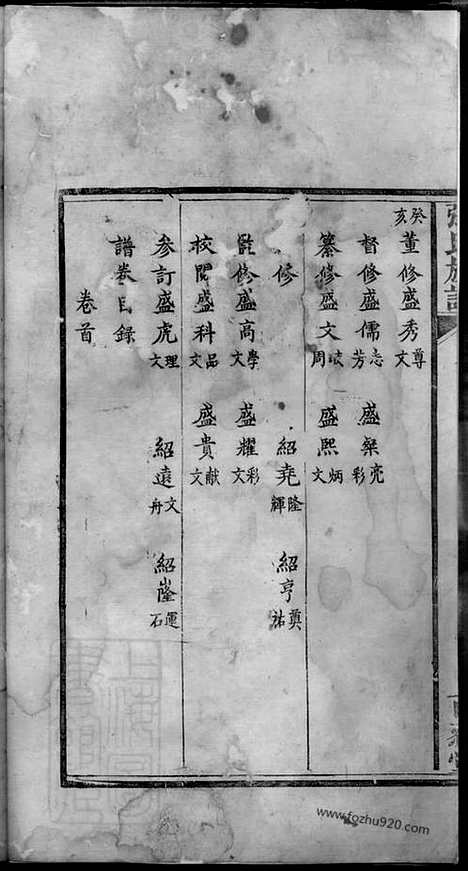 張氏族譜
癸亥董修盛秀尊文
督修盛儒志芳　盛粲亮彩
纂修盛文周　盛熙炳文
修　紹堯隆輝　紹亨奠祐
監修盛高學文　盛耀彩文
校閱盛科品文　盛貴献文
參訂盛虎理文　紹遠文舟　紹嶐運石
譜卷目錄
卷首
www.fozhu920.com